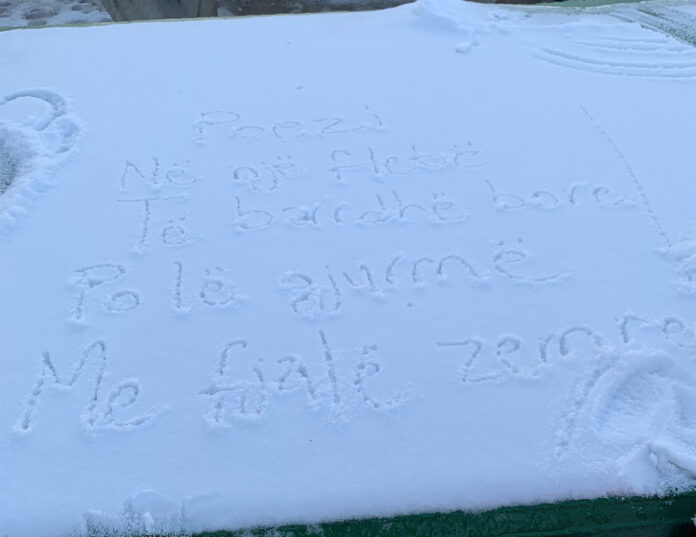 Poezi
Në një fletë
Të bardhë bore
Po lë gjurmë
Me fjalë zemre